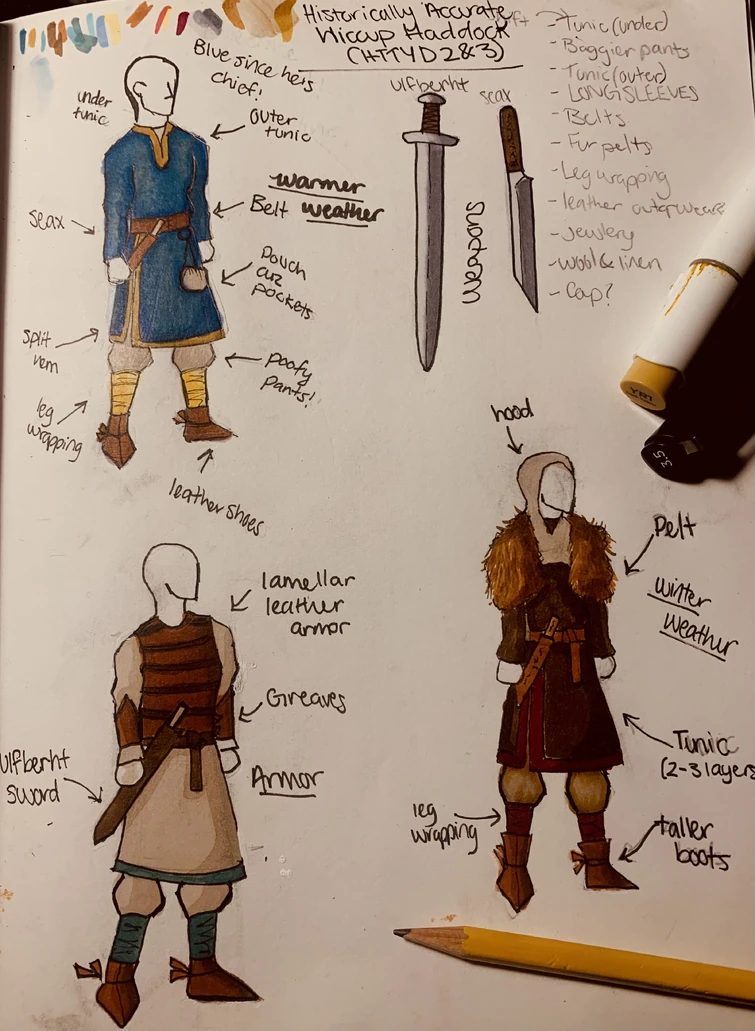 Historically Accurate
Hiccup Haddock
(HTTYD 2&3)
Blue since he's
chief!
under
tunic
outer
tunic
warmer
weather
Belt
seax
pouch
cuz
pockets
split
hem
poofy
pants!
leg
wrapping
leather shoes
ulfberht
seax
weapons
- Tunic (under)
- Baggier pants
- Tunic (outer)
- LONG SLEEVES
- Belts
- Fur pelts
- Leg wrapping
- leather outerwear
- Jewlery
- wool & linen
- Cap?
YR1
3.5
hood
Pelt
winter
weather
Tunic
(2-3 layers
leg
wrapping
taller
boots
lamellar
leather
armor
Greaves
Armor
ulfberht
sword